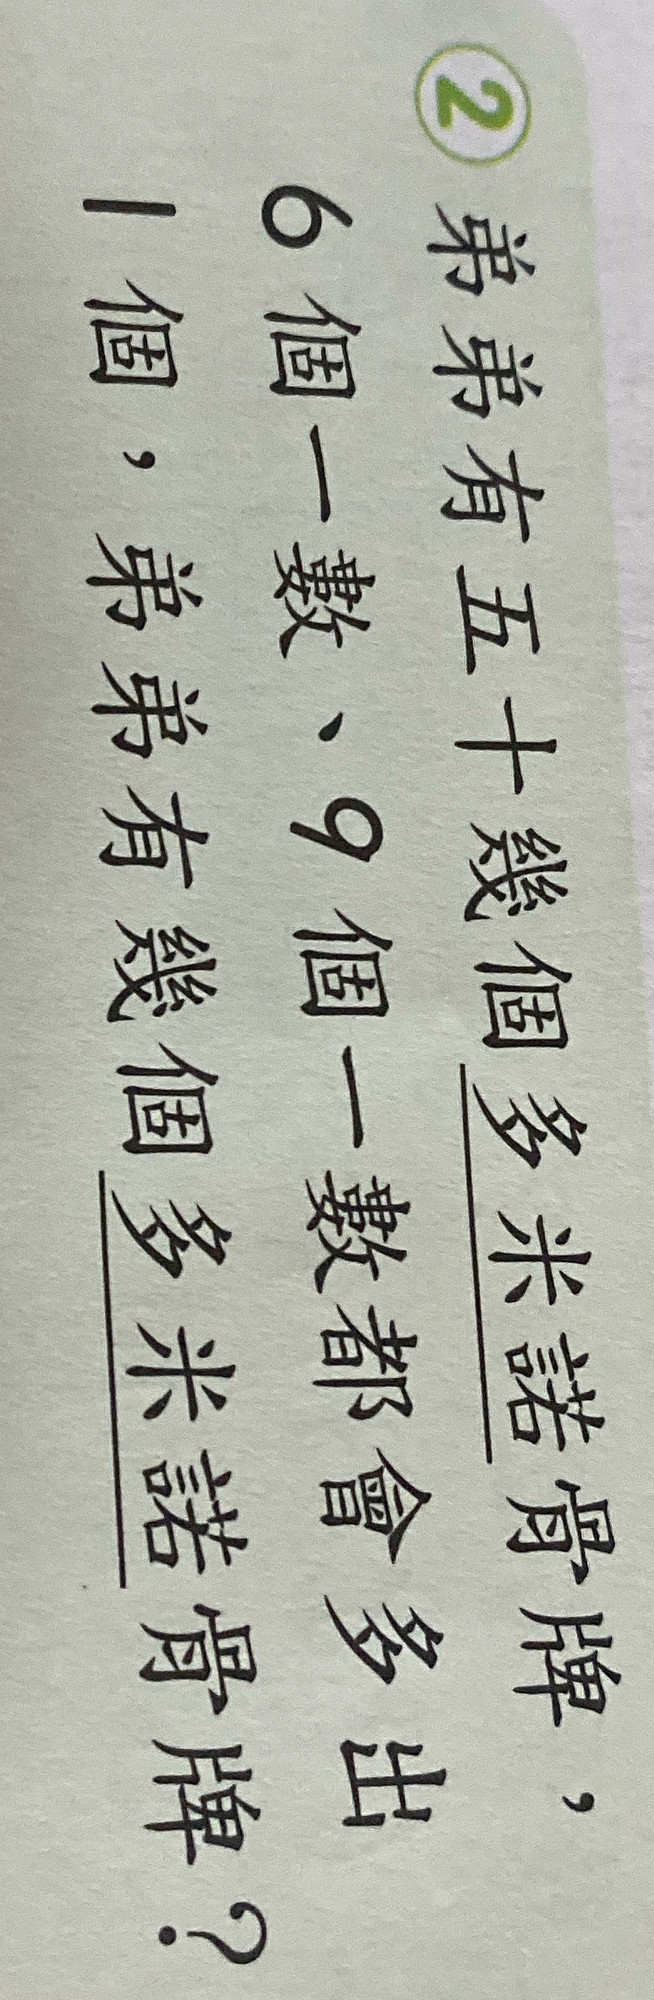 ② 弟弟有五十幾個多米諾骨牌，
6個一數、9個一數都會多出
1個，弟弟有幾個多米諾骨牌？